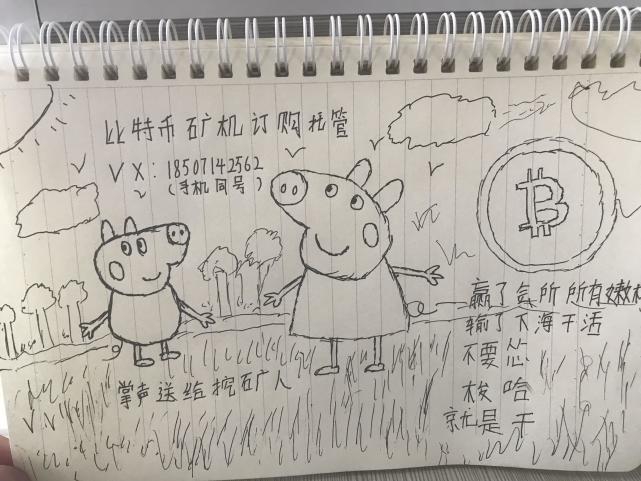 比特币矿机订购托管
VX：18507142562
（手机同号）
赢了会所 所有嫩模
输了下海干活
不要怂
梭哈
就是干
掌声送给挖矿人